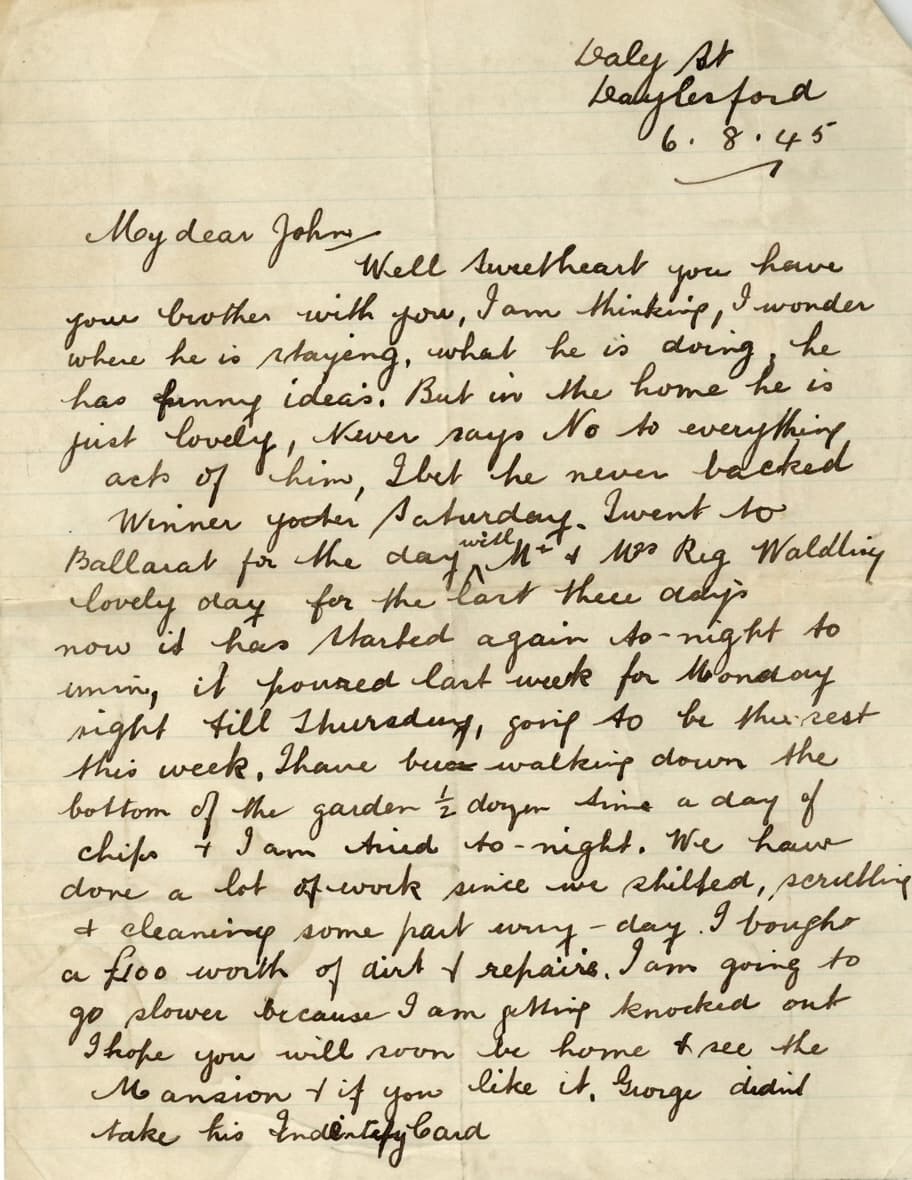 Daly St
Daylesford
6.8.45
My dear John
Well Sweetheart you have
your brother with you, I am thinking, I wonder
where he is stayeng, what he is doing, he
has funny ideas. But in the home he is
just lovely, Never says No to everything
acts of him, I bet he never backed
Winner Saturday. I went to
Ballarat for the day with Mr & Mrs Reg Waldling
lovely day for the last three days
now it has started again to-night to
it poured last week for Monday
night till Thursday, going to be the rest
this week. I have been walking down the
bottom of the garden ½ dozen time a day of
chips + I am tried to-night. We have
done a lot of work since we shifted, scrubbing
+ cleaning some part every-day. I bought
a £100 worth of dirt & repairs. I am going to
go slower because I am getting knocked out
I hope you will soon be home & see the
Mansion + if you like it. George didnt
take his Indentefy Card